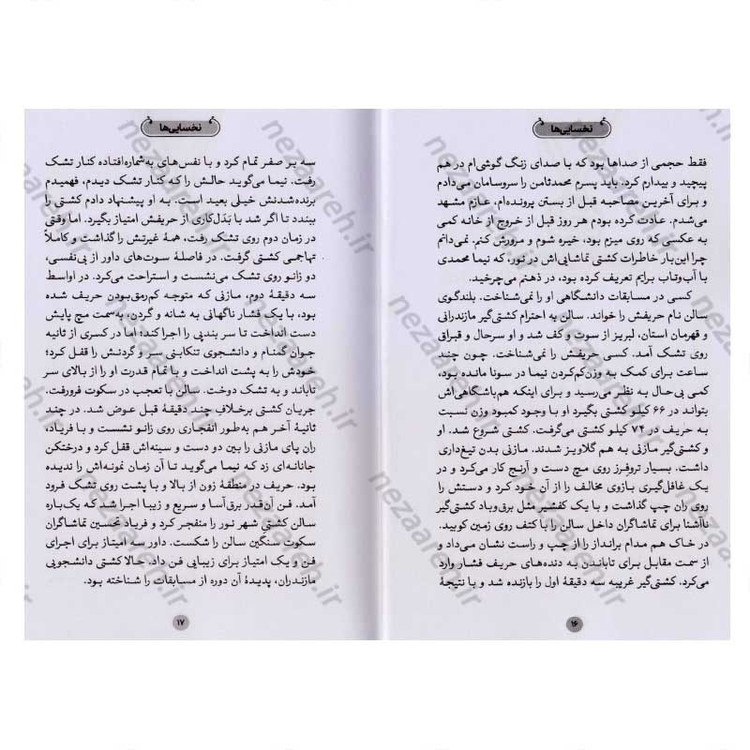 نخسایی‌ها
فقط حجمی از صداها بود که با صدای زنگ گوشی‌ام در هم
پیچید و بیدارم کرد. باید پسرم محمدثامن را سروسامان می‌دادم
و برای آخرین مصاحبه قبل از بستن پرونده‌ام، عازم مشهد
می‌شدم. عادت کرده بودم هر روز قبل از خروج از خانه کمی
به عکسی که روی میزم بود، خیره شوم و مرورش کنم. نمی‌دانم
چرا این‌بار خاطرات کشتی تماشایی‌اش در نور، که نیما محمدی
با آب‌وتاب برایم تعریف کرده بود، در ذهنم می‌چرخید.
کسی در مسابقات دانشگاهی او را نمی‌شناخت. بلندگوی
سالن نام حریفش را خواند. سالن به احترام کشتی‌گیر مازندرانی
و قهرمان استان، لبریز از سوت و کف شد و او سرحال و قبراق
روی تشک آمد. کسی حریفش را نمی‌شناخت. چون چند
ساعت برای کمک به وزن‌کم‌کردن نیما در سونا مانده بود،
کمی بی‌حال به نظر می‌رسید و برای اینکه هم‌باشگاهی‌اش
بتواند در ۶۶ کیلو کشتی بگیرد او با وجود کمبود وزن نسبت
به حریف در ۷۴ کیلو کشتی می‌گرفت. کشتی شروع شد. او
و کشتی‌گیر مازنی به هم گلاویز شدند. مازنی بدن تیغ‌داری
داشت. بسیار تروفرز روی مچ دست و آرنج کار می‌کرد و در
یک غافل‌گیری بازوی مخالف را از آن خود کرد و دستش را
روی ران چپ گذاشت و با یک کفشیر مثل برق‌وباد کشتی‌گیر
ناآشنا برای تماشاگران داخل سالن را با کتف روی زمین کوبید.
در خاک هم مدام برانداز را از چپ و راست نشان می‌داد و
از سمت مقابل برای تاباندن به دنده‌های حریف فشار وارد
می‌کرد. کشتی‌گیر غریبه سه دقیقهٔ اول را بازنده شد و با نتیجهٔ
۱۶
نخسایی‌ها
سه بر صفر تمام کرد و با نفس‌های به‌شماره‌افتاده کنار تشک
رفت. نیما می‌گوید حالش را که کنار تشک دیدم، فهمیدم
برنده‌شدنش خیلی بعید است. به او پیشنهاد دادم کشتی را
ببندد تا اگر شد با بَدَل‌کاری از حریفش امتیاز بگیرد. اما وقتی
در زمان دوم روی تشک رفت، همهٔ غیرتش را گذاشت و کاملاً
تهاجمی کشتی گرفت. در فاصلهٔ سوت‌های داور از بی‌نفسی،
دو زانو روی تشک می‌نشست و استراحت می‌کرد. در اواسط
سه دقیقهٔ دوم، مازنی که متوجه کم‌رمق‌بودن حریف شده
بود، با یک فشار ناگهانی به شانه و گردن، به‌سمت مچ پایش
دست انداخت تا سر بندپی را اجرا کند؛ اما در کسری از ثانیه
جوان گمنام و دانشجوی تنکابنی سر و گردنش را قفل کرد؛
خودش را به پشت انداخت و با تمام قدرت او را از بالای سر
تاباند و به تشک دوخت. سالن با تعجب در سکوت فرورفت.
جریان کشتی برخلاف چند دقیقهٔ قبل عوض شد. در چند
ثانیهٔ آخر هم به‌طور انفجاری روی زانو نشست و با فریاد،
ران پای مازنی را بین دو دست و سینه‌اش قفل کرد و درختکن
جانانه‌ای زد که نیما می‌گوید تا آن زمان نمونه‌اش را ندیده
بود. حریف در منطقهٔ زون از بالا و با پشت روی تشک فرود
آمد. فن آن‌قدر برق‌آسا و سریع و زیبا اجرا شد که یک‌باره
سالن کشتیِ شهر نور را منفجر کرد و فریاد تحسین تماشاگران
سکوت سنگین سالن را شکست. داور سه امتیاز برای اجرای
فن و یک امتیاز برای زیبایی فن داد. حالا کشتی دانشجویی
مازندران، پدیدهٔ آن دوره از مسابقات را شناخته بود.
۱۷
nezaareh.ir